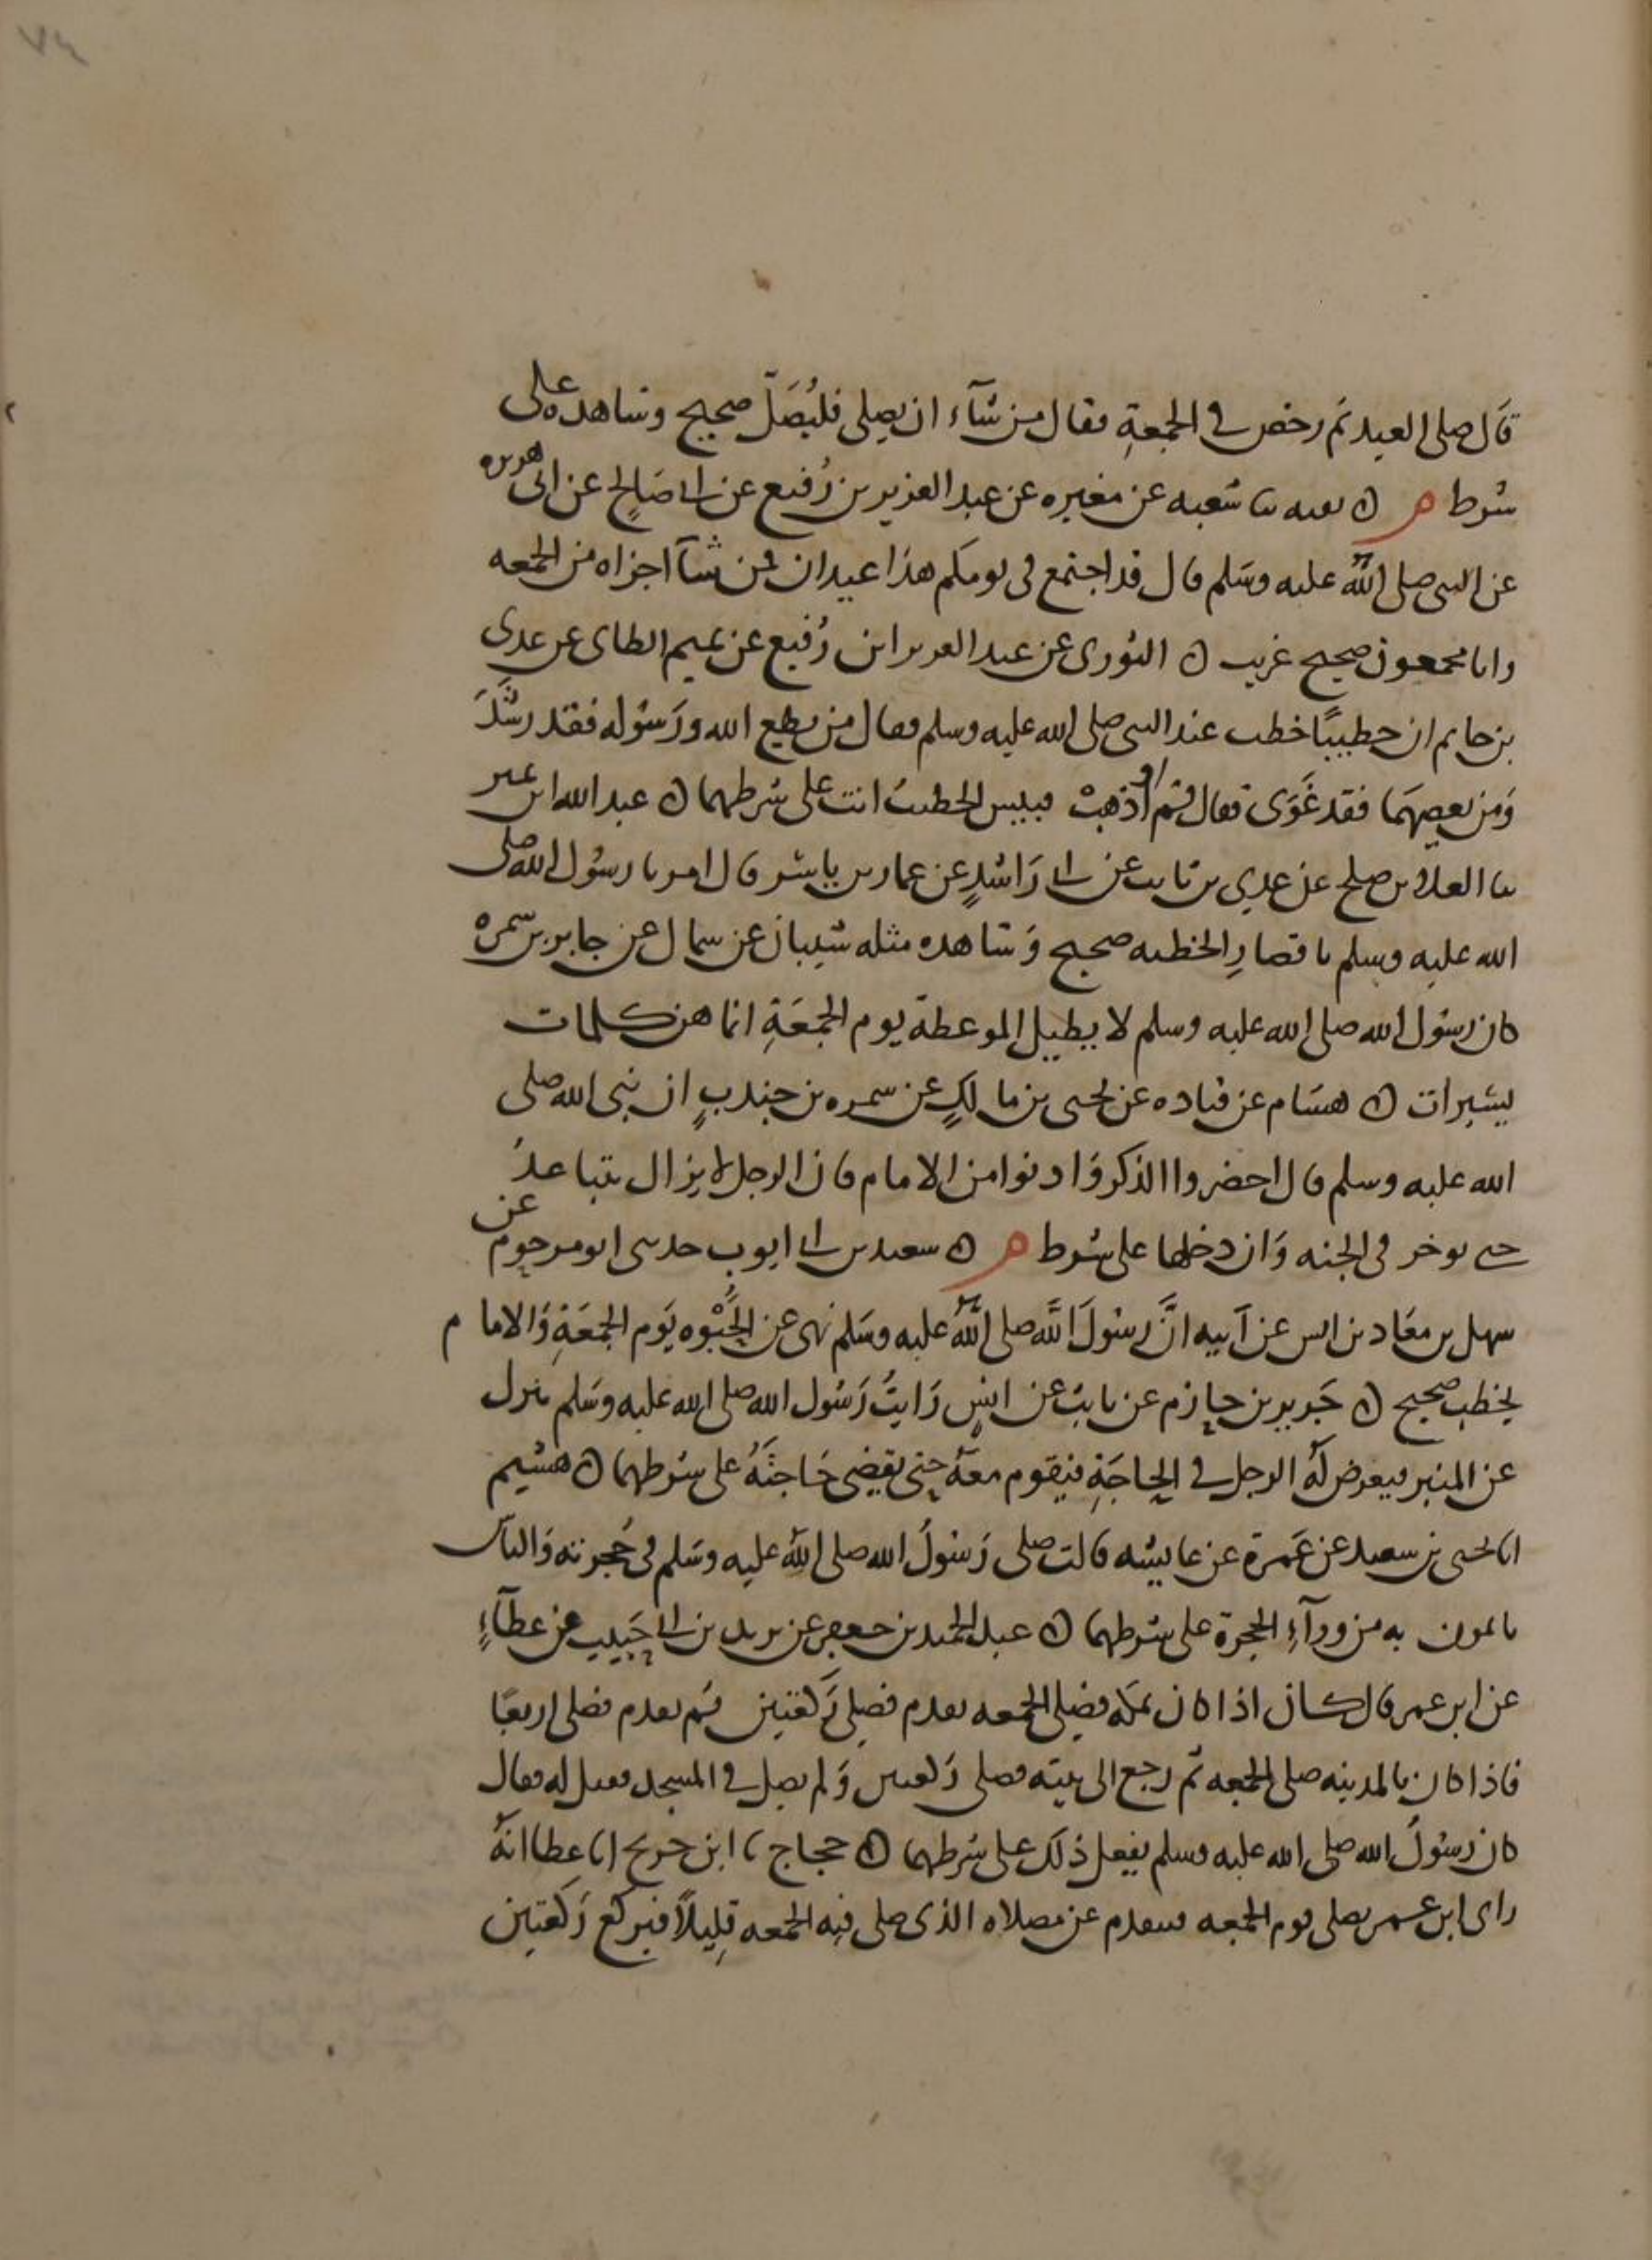 ٧٤
قال صلى العيد ثم رخص في الجمعةِ فقال من شآء ان يصلى فليُصَلّ صحيح وشاهده على
شرط م ن بقيه ثنا شعبه عن مغيره عن عبد العزيز بن رُفيع عن ابي صَالحٍ عن ابى هريره
عن النبى صلى اللهُ عليه وسَلم قال قد اجتمع فى يومكم هذا عيدان فمن شآ اجزاه من الجمعه
وانا مجمعون صحيح غريب ن الثورى عن عبد العزيز ابن رُفيع عن تميم الطاى عن عدى
بن حاتم ان خطيبًا خطب عند النبى صلى الله عليه وسلم فقال من يطع الله ورَسُوله فقد رشَدَ
وَمن يعصِهمَا فقد غَوَى فقال قم او اذهبْ فبيس الخطيبُ انت على شرطهما ن عبد الله ابن نمير
ثنا العلا بن صلح عن عدِي بن ثابت عن ابي رَاشدٍ عن عمار بن ياسر قال امرنا رسُول الله صلى
الله عليه وسلم باقصارِ الخطبه صحيح وَشاهده مثله شيبان عن سماك عن جابر بن سمره
كان رسُول الله صلى الله عليه وسلم لا يطيل الموعظة يوم الجمعَةِ انما هن كلمات
يسَيرات ن هشام عن قتاده عن يحيى بن مالكٍ عن سمره بن جندبٍ ان نبى الله صلى
الله عليه وسلم قال احضروا الذكر وَادنوا من الامام فان الرجل لا يزال يتباعدُ
حتى يوخر فى الجنه وَان دخلها على شرط م ن سعيد بن ابي ايوب حدثنى ابو مرحوم عن
سهل بن معَاذ بن انس عن اَبيه انَّ رسُولَ اللَّه صلى اللَّهُ عليه وسَلم نهى عن الحُبْوه يَوم الجمعَةِ وَالامام
يخطب صحيح ن جَرير بن حازم عن ثابتٍ عن انسٍ رَايتُ رَسُول الله صلى الله عليه وسَلم ينزل
عن المنبر فيعرض لهُ الرجل في الحاجَةِ فيقوم معهُ حتى يقضِي حَاجتَهُ على شرطهما ن هشيم
انا يحيى بن سعيد عن عَمرة عن عايشه قالت صلى رَسُولُ الله صلى اللهُ عليه وسَلم فى حُجرته وَالناس
ياتمون به من ورآءِ الحجرة على شرطهما ن عبد الحميد بن جعفر عن يزيد بن ابي حَبيب عن عطآءٍ
عن ابن عمر قال كان اذا كان بمكه فصلى الجمعه تقدم فصلى رَكعتين ثم تقدم فصلى اربعًا
فاذا كان بالمدينه صلى الجمعه ثم رجع الى بيته فصلى رَكعتين وَلم يصل في المسجد فقيل له فقال
كان رسُولُ الله صلى الله عليه وسلم يفعل ذلك على شرطهما ن حجاج ثنا ابن جريج انا عطا انهُ
راى ابن عمر يصلى يوم الجمعه فيتقدم عن مصلاه الذى صلى فيه الجمعه قليلًا فيركع رَكعتين